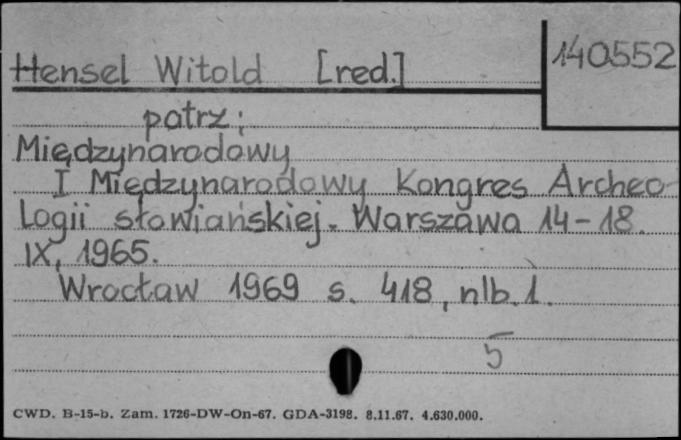 Hensel Witold [red.] 140552
patrz:
Międzynarodowy
I Międzynarodowy Kongres Archeo-
logii słowiańskiej. Warszawa 14-18.
IX, 1965.
Wrocław 1969 s. 418, nlb. 1.
5
CWD. B-15-b. Zam. 1726-DW-On-67. GDA-3198. 8.11.67. 4.630.000.